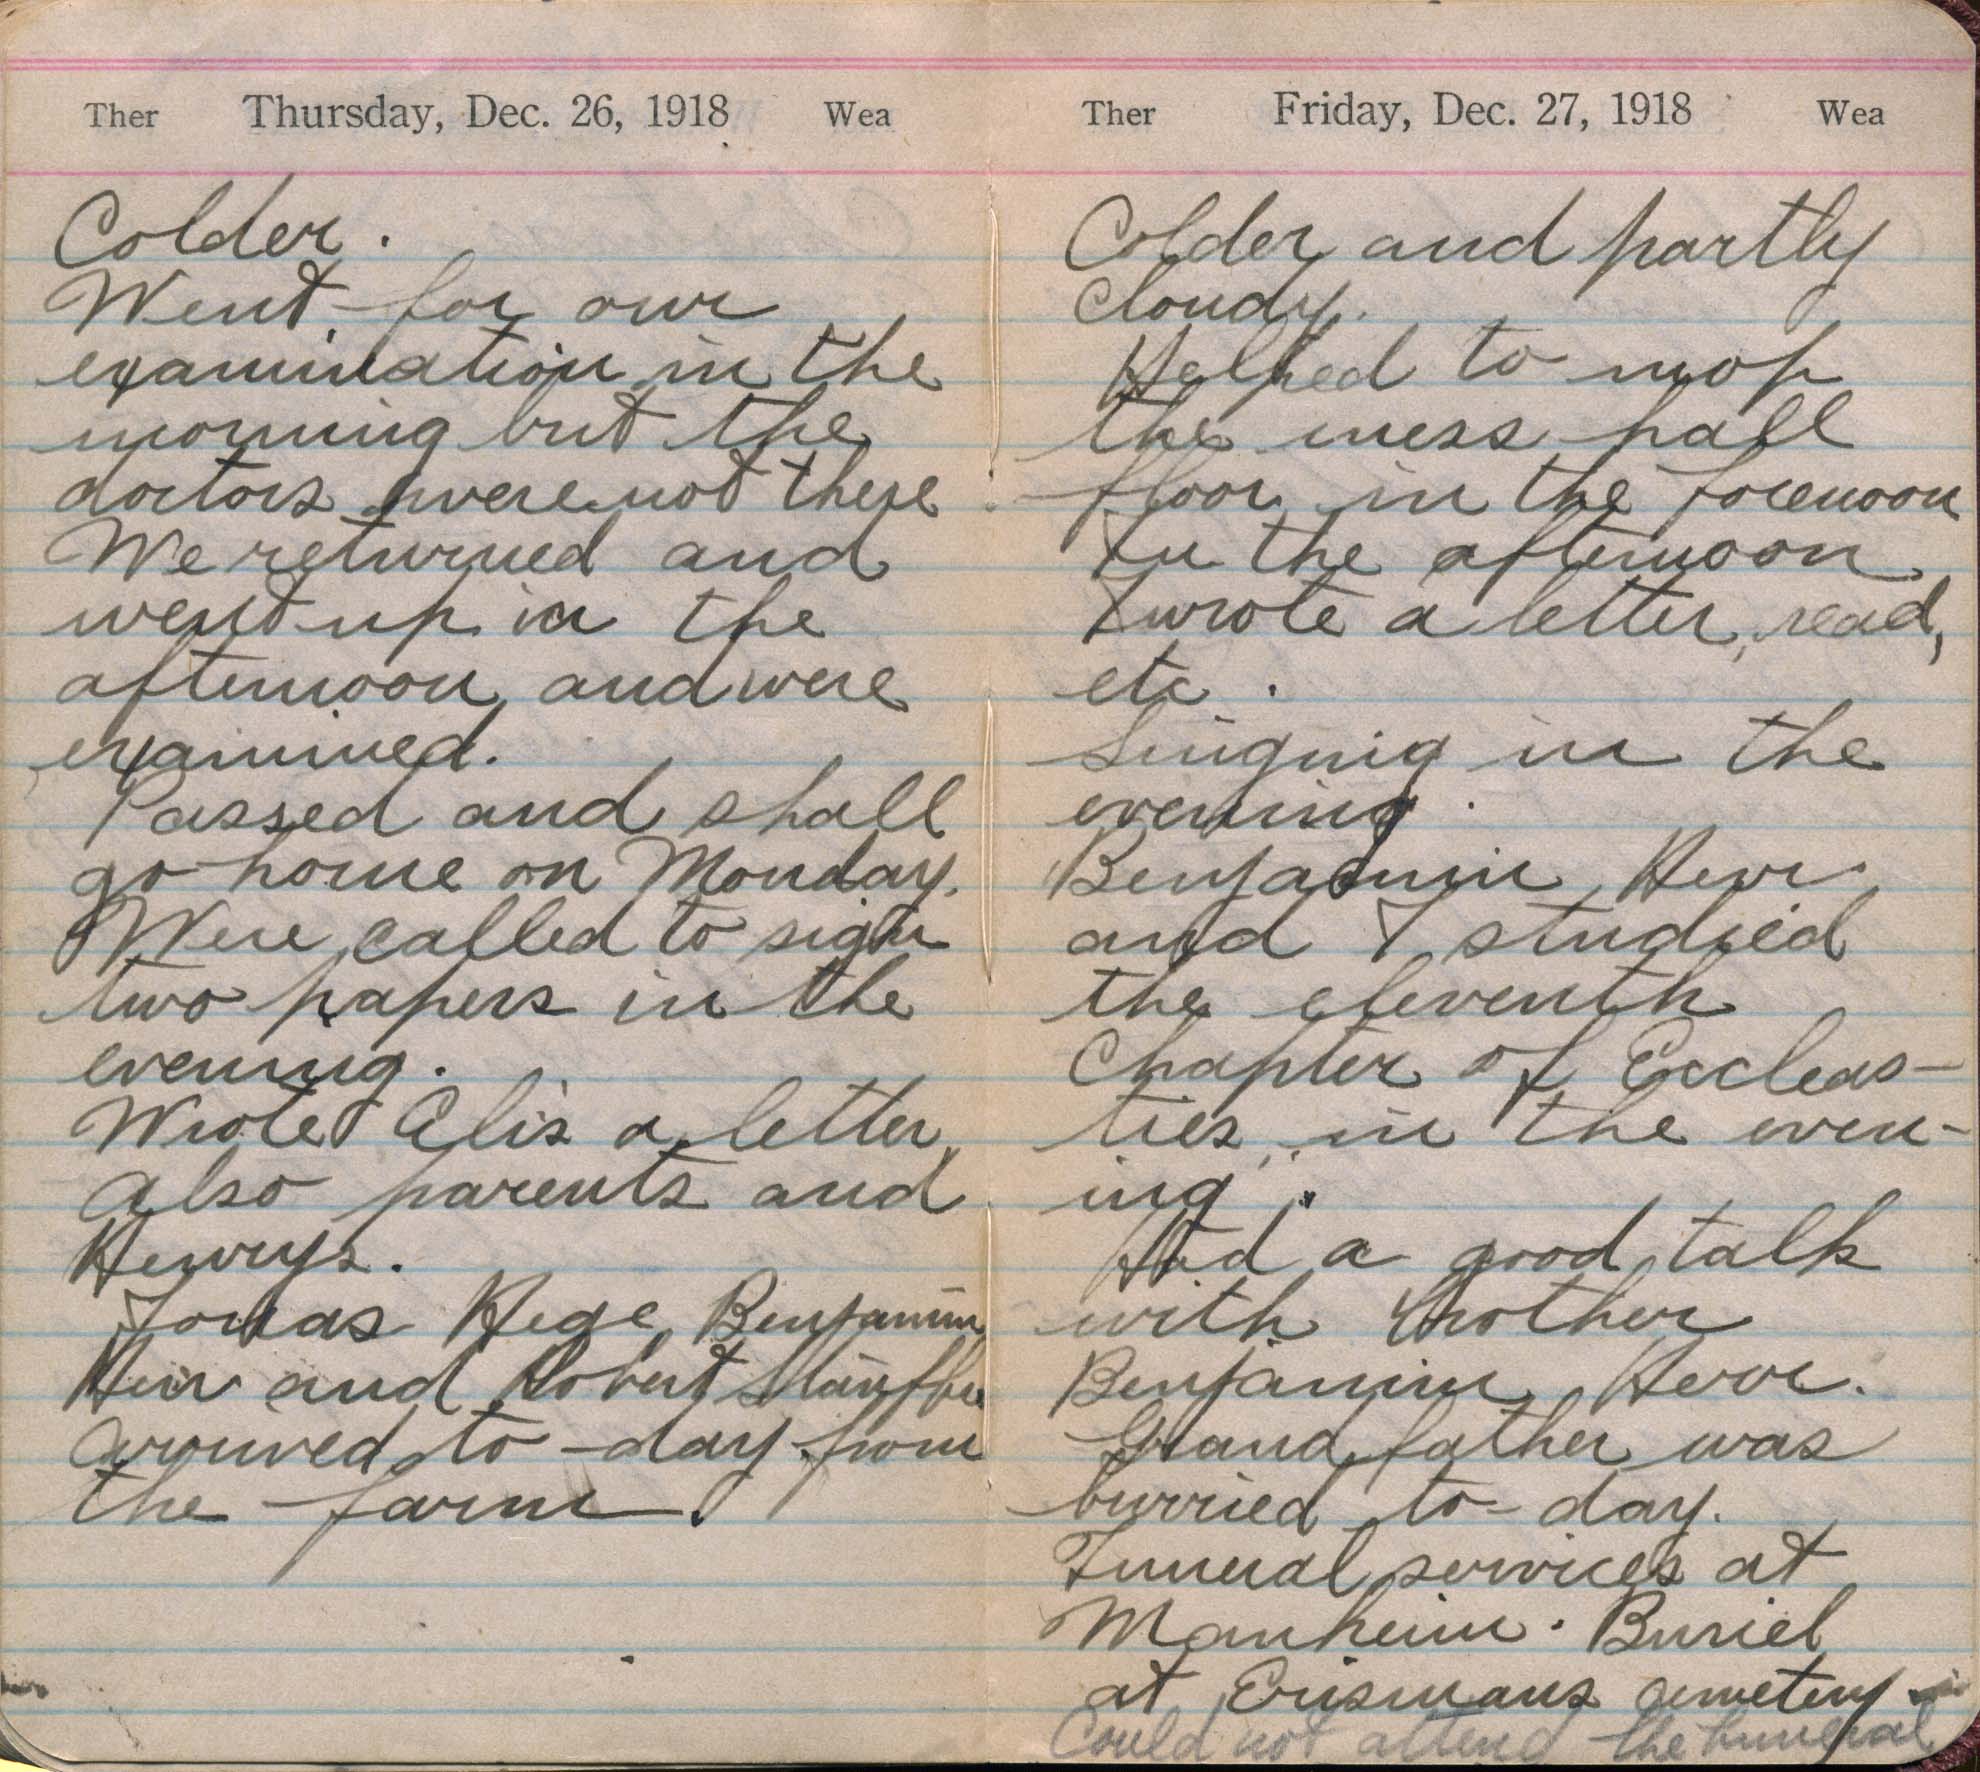 Ther Thursday, Dec. 26, 1918 Wea
Colder.
Went for our
examination in the
morning but the
doctors were not there
We returned and
went up in the
afternoon and were
examined.
Passed and shall
go home on Monday.
Were called to sign
two papers in the
evening.
Wrote Elis a letter,
also parents and
Henrys.
Hege, Benjamin
Herr and Robert Stauffer
arrived to-day from
the farm.
Ther Friday, Dec. 27, 1918 Wea
Colder and partly
cloudy.
Helped to mop
the mess hall
floor in the forenoon
In the afternoon
I wrote a letter, read,
etc.
Singing in the
evening.
Benjamin Herr
and I studied
the eleventh
Chapter of Eccleas-
ties in the even-
ing.
Had a good talk
with brother
Benjamin Herr.
Grand father was
burried to-day.
Funeral services at
Manheim. Buriel
at Erismans cemetery
Could not attend the funeral